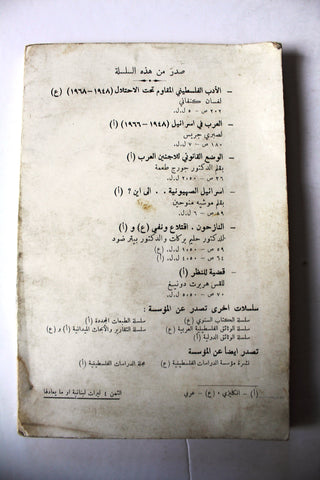 صدر من هذه السلسلة
– الأدب الفلسطيني المقاوم تحت الاحتلال (١٩٤٨ – ١٩٦٨) (ع)
لغسان كنفاني
٢٠٢ ص – ٥ ل.ل.
– العرب في اسرائيل (١٩٤٨ – ١٩٦٦) (أ)
لصبري جريس
١٨٠ ص – ٧ ل.ل.
– الوضع القانوني للاجئين العرب (أ)
بقلم الدكتور جورج طعمة
٢٦ ص – ٢٥٠ ل.ل.
– اسرائيل الصهيونية . . الى اين ؟ (أ)
بقلم موشيه منوحين
٥٩ ص – ٦ ل.ل.
– النازحون . اقتلاع ونفي (ع) و (أ)
للدكتور حليم بركات والدكتور بيتر ضود
٥٩ ص – ١٠٥٠ ل.ل. (ع)
٦٤ ص – ٤٥٠ ل.ل. (أ)
– قضية للنظر (أ)
للقس هربرت دونيغ
٧٠ ص – ٥٥٠ ل.ل.
سلسلات اخرى تصدر عن المؤسسة :
سلسلة الكتاب السنوي (ع)
سلسلة الطبعات المجددة (أ)
سلسلة الوثائق الفلسطينية العربية (ع)
سلسلة التقارير والأبحاث الميدانية (أ) و (ع)
سلسلة الوثائق الدولية (أ)
تصدر ايضاً عن المؤسسة
نشرة مؤسسة الدراسات الفلسطينية (ع)
مجلة الدراسات الفلسطينية (أ)
(أ) – انكليزي ، (ع) – عربي
الثمن ٤ ليرات لبنانية او ما يعادلها